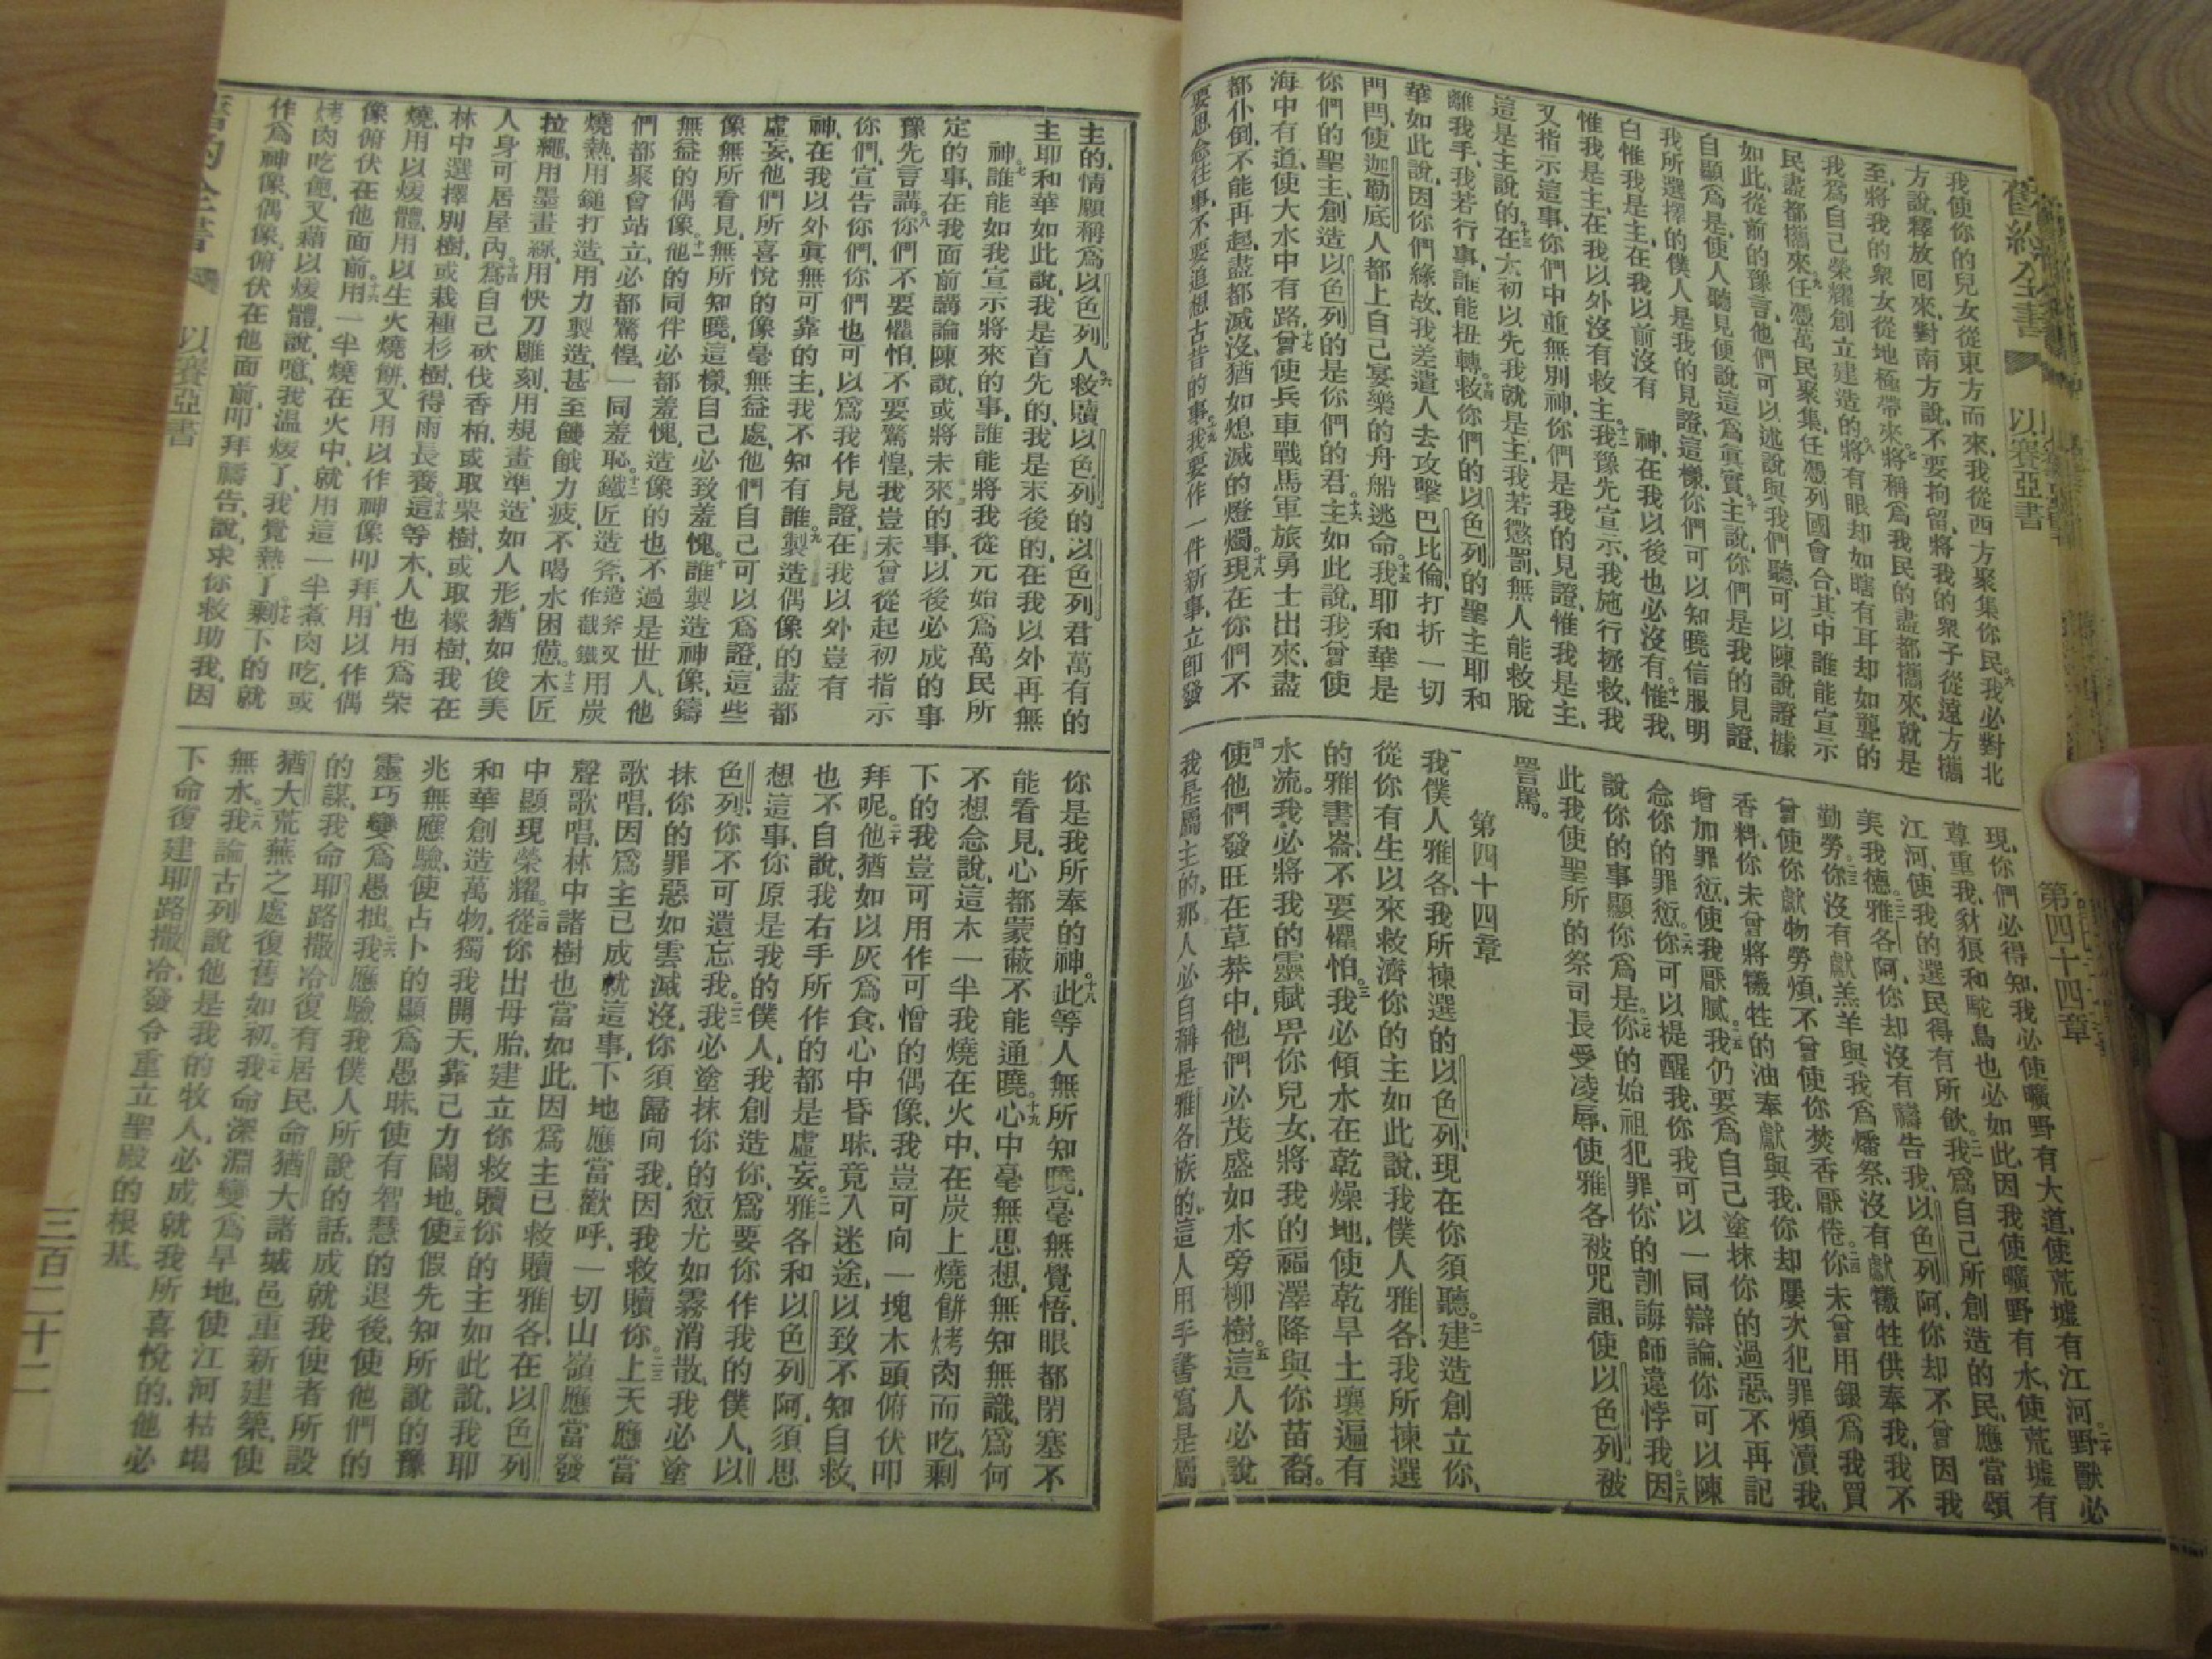 舊約全書 以賽亞書 第四十四章
我使你的兒女從東方而來、我從西方聚集你民。六我必對北
方說、釋放回來、對南方說、不要拘留、將我的衆子從遠方攜
至、將我的衆女從地極帶來。七將稱爲我民的盡都攜來、就是
我爲自己榮耀創立建造的。八將有眼却如瞎有耳却如聾的
民盡都攜來。九任憑萬民聚集、任憑列國會合、其中誰能宣示
如此、從前的豫言、他們可以述說與我們聽、可以陳說證據
自顯爲是、使人聽見便說這爲眞實。十主說、你們是我的見證、
我所選擇的僕人是我的見證、這樣、你們可以知曉信服明
白惟我是主、在我以前沒有 神、在我以後也必沒有。十一惟我、
惟我是主、在我以外沒有救主。十二我豫先宣示、我施行拯救、我
又指示這事、你們中並無別神、你們是我的見證、惟我是主、
這是主說的。十三在太初以先我就是主、我若懲罰無人能救脫
離我手、我若行事、誰能扭轉。十四救你們的以色列的聖主耶和
華如此說、因你們緣故、我差遣人去攻擊巴比倫、打折一切
門閂、使迦勒底人都上自己宴樂的舟船逃命。十五我耶和華是
你們的聖主、創造以色列的是你們的君。十六主如此說、我曾使
海中有道、使大水中有路。十七曾使兵車戰馬軍旅勇士出來、盡
都仆倒、不能再起、盡都滅沒、猶如熄滅的燈燭。十八現在你們不
要思念往事、不要追想古昔的事。十九我要作一件新事、立卽發
現、你們必得知、我必使曠野有大道、使荒墟有江河。二十野獸必
尊重我、豺狼和駝鳥也必如此、因我使曠野有水、使荒墟有
江河、使我的選民得有所飲。二一我爲自己所創造的民、應當頌
美我德。二二雅各阿、你却沒有禱告我、以色列阿、你却不曾因我
勤勞。二三你沒有獻羔羊與我爲燔祭、沒有獻犧牲供奉我、我不
曾使你獻物勞煩、不曾使你焚香厭倦。二四你未曾用銀爲我買
香料、你未曾將犧牲的油奉獻與我、你却屢次犯罪煩瀆我、
增加罪愆、使我厭膩。二五我仍要爲自己塗抹你的過惡、不再記
念你的罪愆。二六你可以提醒我、你我可以一同辯論、你可以陳
說你的事、顯你爲是。二七你的始祖犯罪、你的訓誨師違悖我。二八因
此我使聖所的祭司長受凌辱、使雅各被咒詛、使以色列被
詈罵。
第四十四章
一我僕人雅各、我所揀選的以色列、現在你須聽。二建造創立你、
從你有生以來救濟你的主如此說、我僕人雅各、我所揀選
的雅書崙、不要懼怕。三我必傾水在乾燥地、使乾旱土壤遍有
水流。我必將我的靈賦畀你兒女、將我的福澤降與你苗裔。
四使他們發旺在草莽中、他們必茂盛如水旁柳樹。五這人必說
我是屬主的、那人必自稱是雅各族的、這人用手書寫是屬
主的、情願稱爲以色列人。六救贖以色列的以色列君萬有的
主耶和華如此說、我是首先的、我是末後的、在我以外再無
神。七誰能如我宣示將來的事、誰能將我從元始爲萬民所
定的事、在我面前講論陳說、或將未來的事、以後必成的事
豫先言講。八你們不要懼怕、不要驚惶、我豈未曾從起初指示
你們、宣告你們、你們也可以爲我作見證、在我以外豈有
神、在我以外眞無可靠的主、我不知有誰。九製造偶像的盡都
虛妄、他們所喜悅的像毫無益處、他們自己可以爲證、這些
像無所看見、無所知曉、這樣、自己必致羞愧。十誰製造神像、鑄
無益的偶像。十一他的同伴必都羞愧、造像的也不過是世人、他
們都聚會站立、必都驚惶、一同羞恥。十二鐵匠造斧、造斧又作截鐵用炭
燒熱、用鎚打造、用力製造、甚至饑餓力疲、不喝水困憊。十三木匠
拉繩、用墨畫線、用快刀雕刻、用規畫準、造如人形、猶如俊美
人身可居屋內。十四爲自己砍伐香柏、或取栗樹、或取橡樹、我在
林中選擇別樹、或栽種杉樹、得雨長養。十五這等木、人也用爲柴
燒、用以煖體、用以生火燒餅、又用以作神像叩拜、用以作偶
像俯伏在他面前。十六用一半燒在火中、就用這一半煮肉吃、或
烤肉吃飽、又藉以煖體、說、噫、我溫煖了、我覺熱了。十七剩下的就
作爲神像、偶像、俯伏在他面前、叩拜禱告、說、求你救助我、因
你是我所奉的神。十八此等人無所知曉、毫無覺悟、眼都閉塞不
能看見、心都蒙蔽不能通曉。十九心中毫無思想、無知無識、爲何
不想念說、這木一半我燒在火中、在炭上燒餅烤肉而吃、剩
下的我豈可用作可憎的偶像、我豈可向一塊木頭俯伏叩
拜呢。二十他猶如以灰爲食、心中昏昧、竟入迷途、以致不知自救、
也不自說、我右手所作的都是虛妄。二一雅各和以色列阿、須思
想這事、你原是我的僕人、我創造你、爲要你作我的僕人、以
色列、你不可遺忘我。二二我必塗抹你的愆尤如霧消散、我必塗
抹你的罪惡如雲滅沒、你須歸向我、因我救贖你。二三上天應當
歌唱、因爲主已成就這事、下地應當歡呼、一切山嶺應當發
聲歌唱、林中諸樹也當如此、因爲主已救贖雅各、在以色列
中顯現榮耀。二四從你出母胎、建立你救贖你的主如此說、我耶
和華創造萬物、獨我開天、靠己力闢地。二五使假先知所說的豫
兆無應驗、使占卜的顯爲愚昧、使有智慧的退後、使他們的
靈巧變爲愚拙。二六我應驗我僕人所說的話、成就我使者所設
的謀、我命耶路撒冷復有居民、命猶大諸城邑重新建築、使
猶大荒蕪之處復舊如初。二七我命深淵變爲旱地、使江河枯竭
無水。二八我論古列說他是我的牧人、必成就我所喜悅的、他必
下命復建耶路撒冷、發令重立聖殿的根基。
以賽亞書 三百二十二